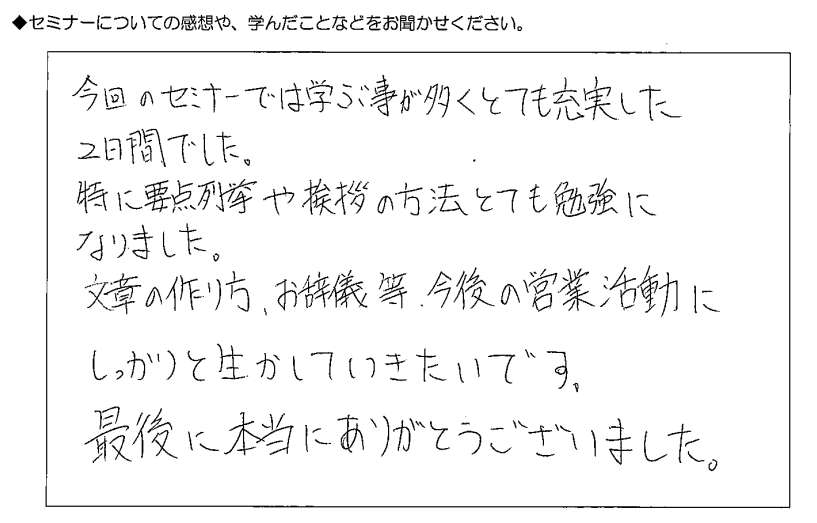 ◆セミナーについての感想や、学んだことなどをお聞かせください。
今回のセミナーでは学ぶ事が多くとても充実した
2日間でした。
特に要点列挙や挨拶の方法とても勉強に
なりました。
文章の作り方、お辞儀等、今後の営業活動に
しっかりと生かしていきたいです。
最後に本当にありがとうございました。